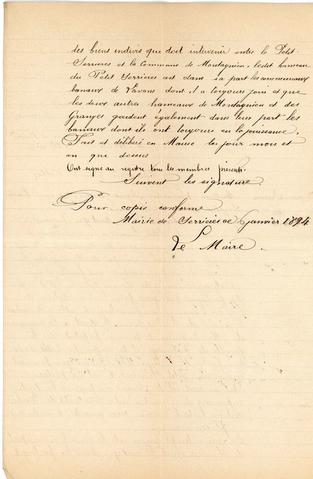 des biens indivis que doit intervenir entre le Petit
Serrières et la Commune de Montagnieu, ledit hameau
du Petit Serrières ait dans sa part les communaux
banaux de Varans dont il a toujours joui et que
les deux autres hameaux de Montagnieu et des
Granges gardent également dans leur part les
banaux dont ils ont toujours eu la jouissance.
Fait et délibéré en Mairie les jour mois et
an que dessus
Ont signé au registre tous les membres présents
Suivent les signature
Pour copie conforme
Mairie de Serrières le 6 janvier 1894
Le Maire.